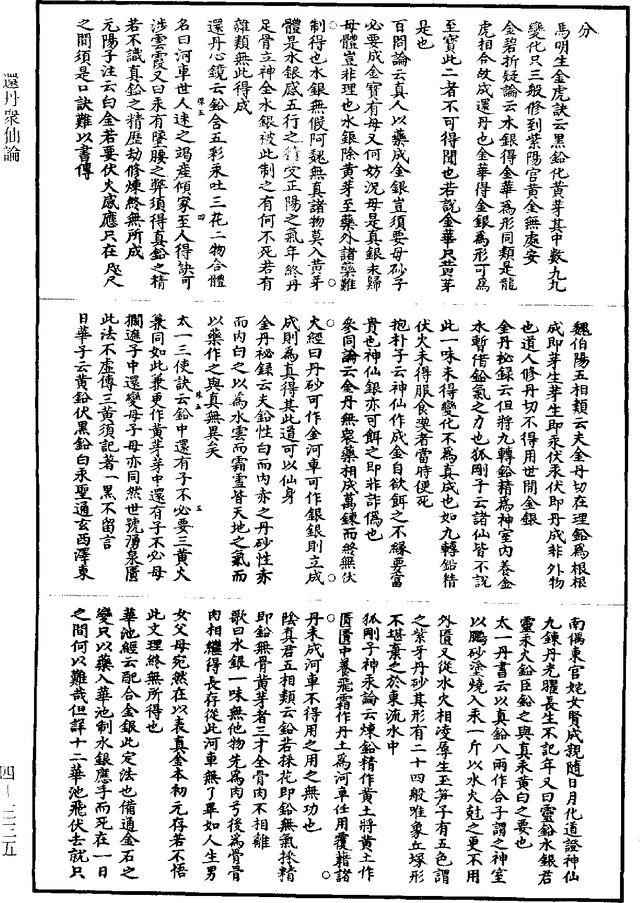 分
馬明生金虎訣云黑鉛化黃芽其中數九九
變化只三般修到紫陽宮黃金無處安
金碧折疑論云水銀得金華為形同類是龍
虎相合故成還丹也金華得金銀為形可為
至寶此二者不可得聞也若說金華只黃芽
是也
百問論云真人以藥成金銀豈須要母砂子
必要成金寶有母又何妨況母是真銀未歸
母體豈非理也水銀除黃芽至藥外諸藥難
制得也水銀無假阿魏無真諸物莫入黃芽
體是水銀感五行之精受正陽之氣年終丹
足骨立神全水銀被此制之有何不死若有
雜類無此得成
還丹心鏡云鉛含五彩汞吐三花二物合體
名曰河車世人迷之竭產傾家至人得訣可
涉雲霞又曰汞有墜腰之弊須得真鉛之精
若不識真鉛之精歷劫修煉終無所成
元陽子注云白金若要伏火感應只在咫尺
之間須是口訣難以書傳
魏伯陽五相類云夫金丹切在理鉛為根根
成即芽生芽生即汞伏汞伏即丹成非外物
也道人修丹切不得用世間金銀
金丹祕錄云但將九轉鉛精為神室內養金
水暫借鉛氣之力也狐剛子云諸仙皆不說
此一味未得變化不為真成也如九轉鉛精
伏火未得服食浼者當時便死
抱朴子云神仙作成金自欲餌之不緣要富
貴也神仙銀亦可餌之即非詐偽也
參同論云金丹無眾藥相成萬鍊而終無伏
火經曰丹砂可作金河車可作銀銀則立成
成則為真得其此道可以仙身
金丹祕錄云夫鉛性白而內赤之丹砂性赤
而內白之以為水雲而霜雪皆天地之氣而
以藥作之與真無異矣
太一三使訣云鉛中還有子不必要三黃大
兼同如此兼更作黃芽芽中還有子不必母
擱進子中還變母子母亦同然世號湧泉匱
此法不虛傳三黃須記著一黑不留言
日華子云黃鉛伏黑鉛白汞聖通玄西澤東
南偶東宮姹女腎成親隨日月化道證神仙
九鍊丹光曜長生不記年又曰靈鉛水銀君
靈汞火鉛臣鉛之與真汞黃白之要也
太一丹書云以真鉛八兩作合子謂之神室
以鵬砂塗燒入汞一斤以水火尅之更不用
外匱又從水火相凌辱生至笋子有五色謂
之紫牙丹砂其形有二十四般唯象丘塚形
不堪棄之於東流水中
狐剛子神汞論云煉鉛精作黃土將黃土作
匱匱中養飛霜作丹土為河車任用覆藉諸
丹未成河車不得用之用之無功也
陰真君五相類云鉛若採花即鉛無氣採精
即鉛無骨黃芽者三才全骨肉不相離
歌曰水銀一味無他物先為肉兮後為骨骨
肉相繼得長存從此河車無了畢如人生男
女父母宛然在以表真金本初元存若不悟
此文理終無所得也
華池經云配合金銀此定法也備通金石之
變只以藥入華池制水銀應手而死在一日
之間何以難哉但詳十二華池飛伏去就只
還丹眾仙論
四—三三五